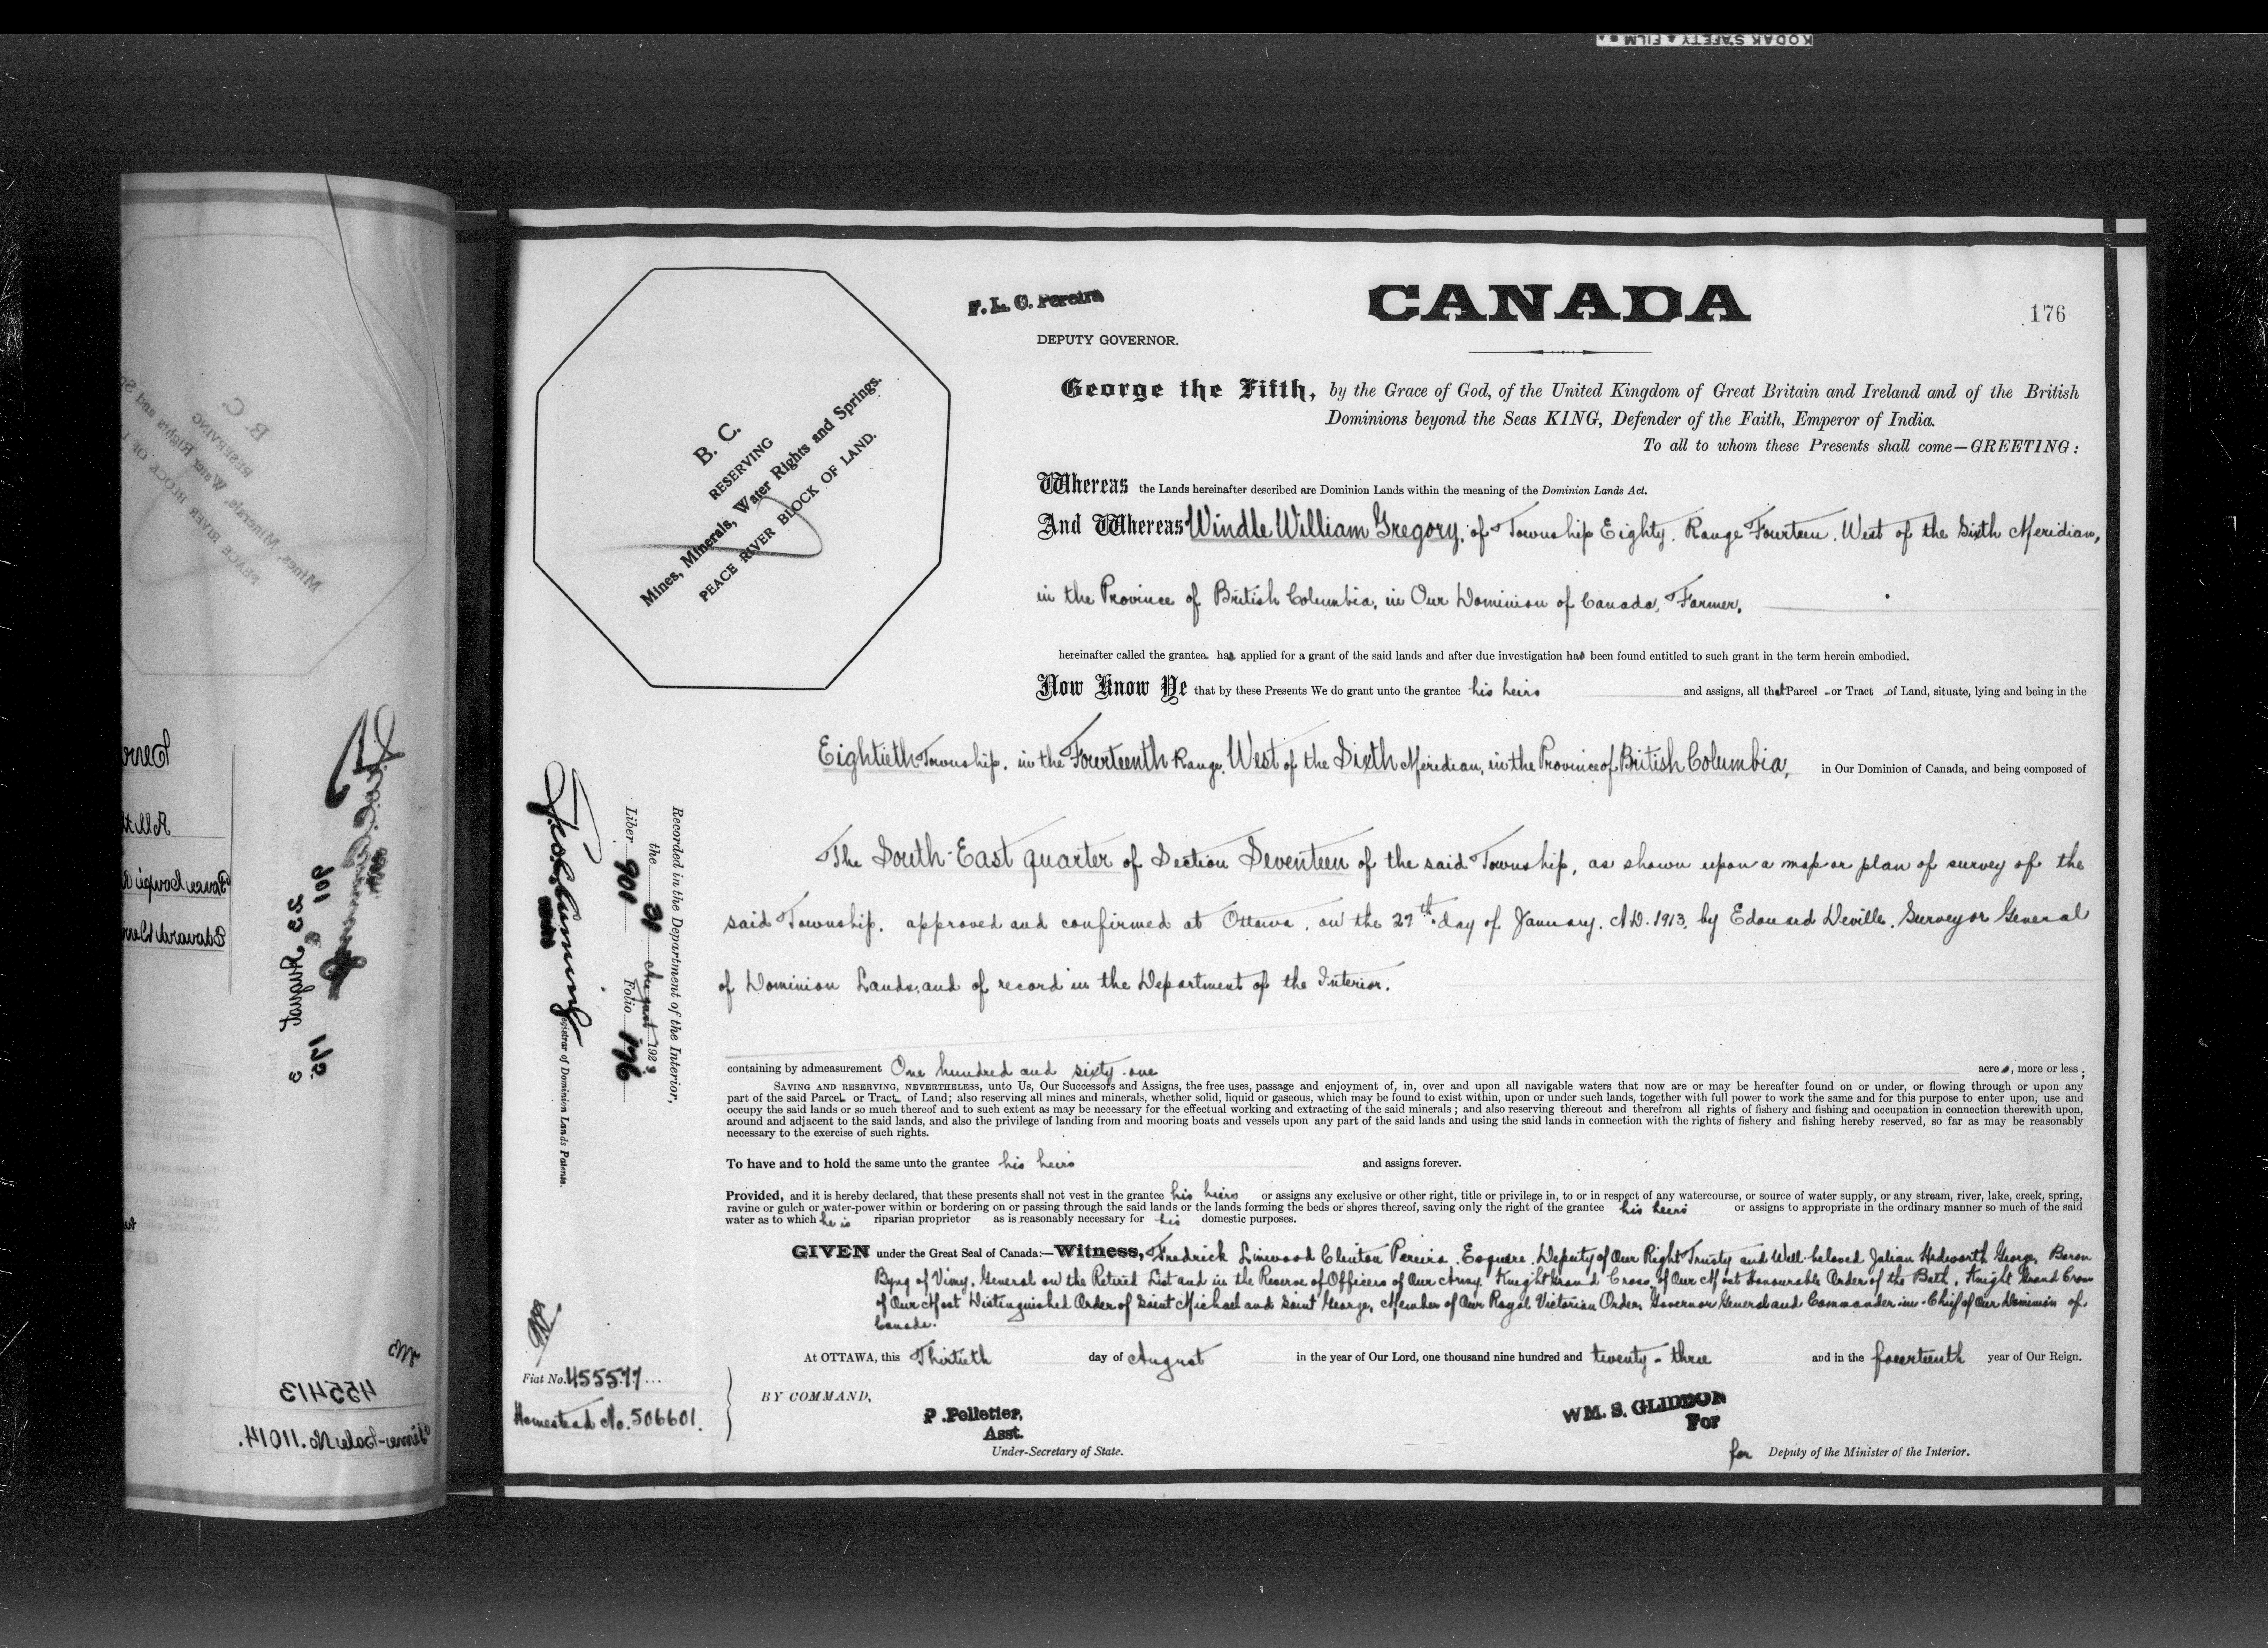 KODAK SAFETY FILM
F. L. C. Pereira
DEPUTY GOVERNOR.
CANADA
176
George the Fifth, by the Grace of God, of the United Kingdom of Great Britain and Ireland and of the British
Dominions beyond the Seas KING, Defender of the Faith, Emperor of India.
To all to whom these Presents shall come—GREETING:
B. C.
RESERVING
Mines, Minerals, Water Rights and Springs.
PEACE RIVER BLOCK OF LAND.
Whereas the Lands hereinafter described are Dominion Lands within the meaning of the Dominion Lands Act.
And Whereas Windle William Gregory, of Township Eighty, Range Fourteen, West of the Sixth Meridian,
in the Province of British Columbia, in Our Dominion of Canada, Farmer,
hereinafter called the grantee has applied for a grant of the said lands and after due investigation has been found entitled to such grant in the term herein embodied.
Now Know Ye that by these Presents We do grant unto the grantee his heirs and assigns, all that Parcel or Tract of Land, situate, lying and being in the
Eightieth Township, in the Fourteenth Range, West of the Sixth Meridian, in the Province of British Columbia, in Our Dominion of Canada, and being composed of
The South-East quarter of Section Seventeen of the said Township, as shown upon a map or plan of survey of the
said Township, approved and confirmed at Ottawa, on the 27th day of January, A.D. 1913, by Edouard Deville, Surveyor General
of Dominion Lands, and of record in the Department of the Interior.
Recorded in the Department of the Interior,
the 31 August 1923
Liber 901 Folio 176
Registrar of Dominion Lands Patents.
containing by admeasurement One hundred and sixty-one acres, more or less;
SAVING AND RESERVING, NEVERTHELESS, unto Us, Our Successors and Assigns, the free uses, passage and enjoyment of, in, over and upon all navigable waters that now are or may be hereafter found on or under, or flowing through or upon any
part of the said Parcel or Tract of Land; also reserving all mines and minerals, whether solid, liquid or gaseous, which may be found to exist within, upon or under such lands, together with full power to work the same and for this purpose to enter upon, use and
occupy the said lands or so much thereof and to such extent as may be necessary for the effectual working and extracting of the said minerals; and also reserving thereout and therefrom all rights of fishery and fishing and occupation in connection therewith upon,
around and adjacent to the said lands, and also the privilege of landing from and mooring boats and vessels upon any part of the said lands and using the said lands in connection with the rights of fishery and fishing hereby reserved, so far as may be reasonably
necessary to the exercise of such rights.
To have and to hold the same unto the grantee his heirs and assigns forever.
Provided, and it is hereby declared, that these presents shall not vest in the grantee his heirs or assigns any exclusive or other right, title or privilege in, to or in respect of any watercourse, or source of water supply, or any stream, river, lake, creek, spring,
ravine or gulch or water-power within or bordering on or passing through the said lands or the lands forming the beds or shores thereof, saving only the right of the grantee his heirs or assigns to appropriate in the ordinary manner so much of the said
water as to which he is riparian proprietor as is reasonably necessary for his domestic purposes.
GIVEN under the Great Seal of Canada:—Witness, Fredrick Linwood Clinton Pereira, Esquire, Deputy of Our Right Trusty and Well-beloved Julian Hedworth George, Baron
Byng of Vimy, General on the Retired List and in the Reserve of Officers of Our Army, Knight Grand Cross of Our Most Honourable Order of the Bath, Knight Grand Cross
of Our Most Distinguished Order of Saint Michael and Saint George, Member of Our Royal Victorian Order, Governor General and Commander-in-Chief of Our Dominion of
Canada.
At OTTAWA, this Thirtieth day of August in the year of Our Lord, one thousand nine hundred and twenty-three and in the fourteenth year of Our Reign.
Fiat No. 455577
Homestead No. 506601.
BY COMMAND,
P. Pelletier,
Asst.
Under-Secretary of State.
WM. S. GLIDDON
For
for Deputy of the Minister of the Interior.
B. C.
RESERVING
23 August
901
175
455413
11014.